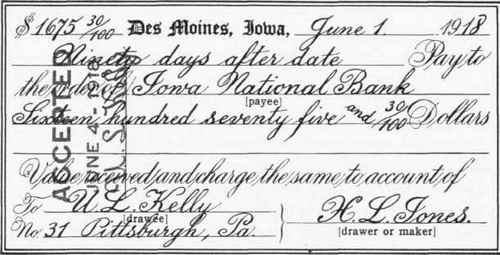 $1675 30/100 Des Moines, Iowa, June 1. 1918
Ninety days after date Pay to
the order of Iowa National Bank
[payee]
Sixteen hundred seventy five and 30/100 Dollars
Value received and charge the same to account of
To U. L. Kelly
[drawee]
No. 31 Pittsburgh, Pa.
H. L. Jones.
[drawer or maker]
ACCEPTED
JUNE 4 - 1918